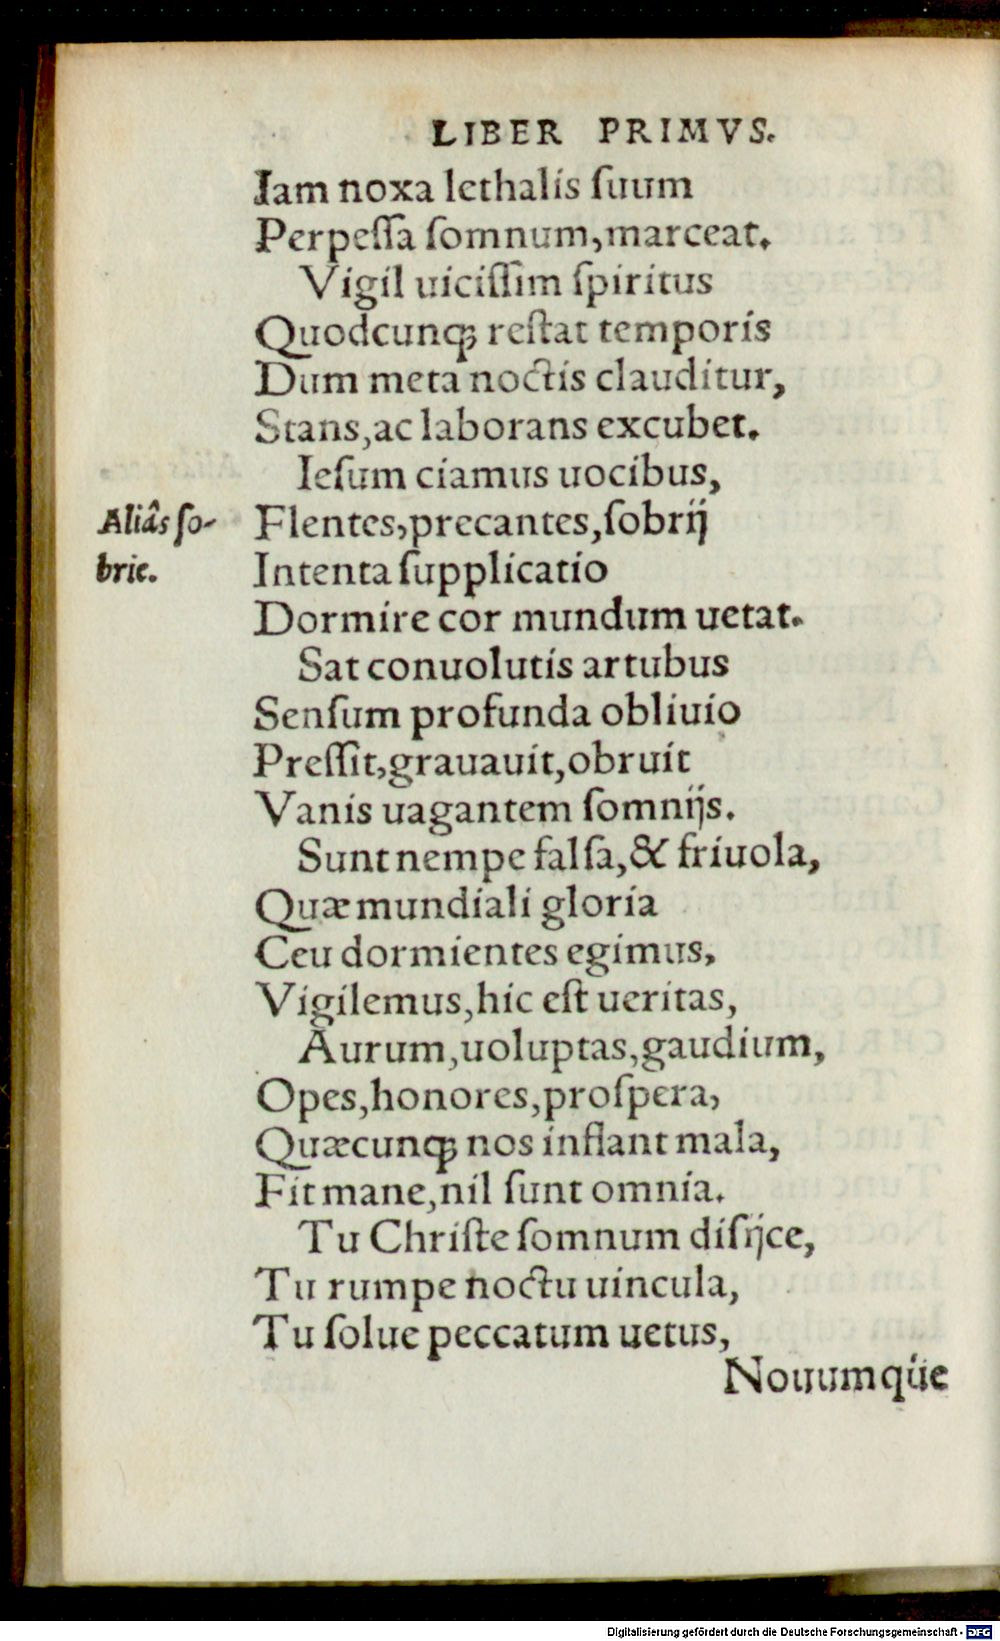 LIBER PRIMVS.
Iam noxa lethalis ſuum
Perpeſſa ſomnum, marceat.
Vigil uiciſſim ſpiritus
Quodcunqꝫ reſtat temporis
Dum meta noctis clauditur,
Stans, ac laborans excubet.
Ieſum ciamus uocibus,
Aliâs ſo-
brie.
Flentes, precantes, ſobrij
Intenta ſupplicatio
Dormire cor mundum uetat.
Sat conuolutis artubus
Senſum profunda obliuio
Preſſit, grauauit, obruit
Vanis uagantem ſomnijs.
Sunt nempe falſa, & friuola,
Quæ mundiali gloria
Ceu dormientes egimus,
Vigilemus, hic eſt ueritas,
Aurum, uoluptas, gaudium,
Opes, honores, proſpera,
Quæcunqꝫ nos inflant mala,
Fit mane, nil ſunt omnia.
Tu Chriſte ſomnum diſijce,
Tu rumpe noctu uincula,
Tu ſolue peccatum uetus,
Nouumq́ue
Digitalisierung gefördert durch die Deutsche Forschungsgemeinschaft - DFG